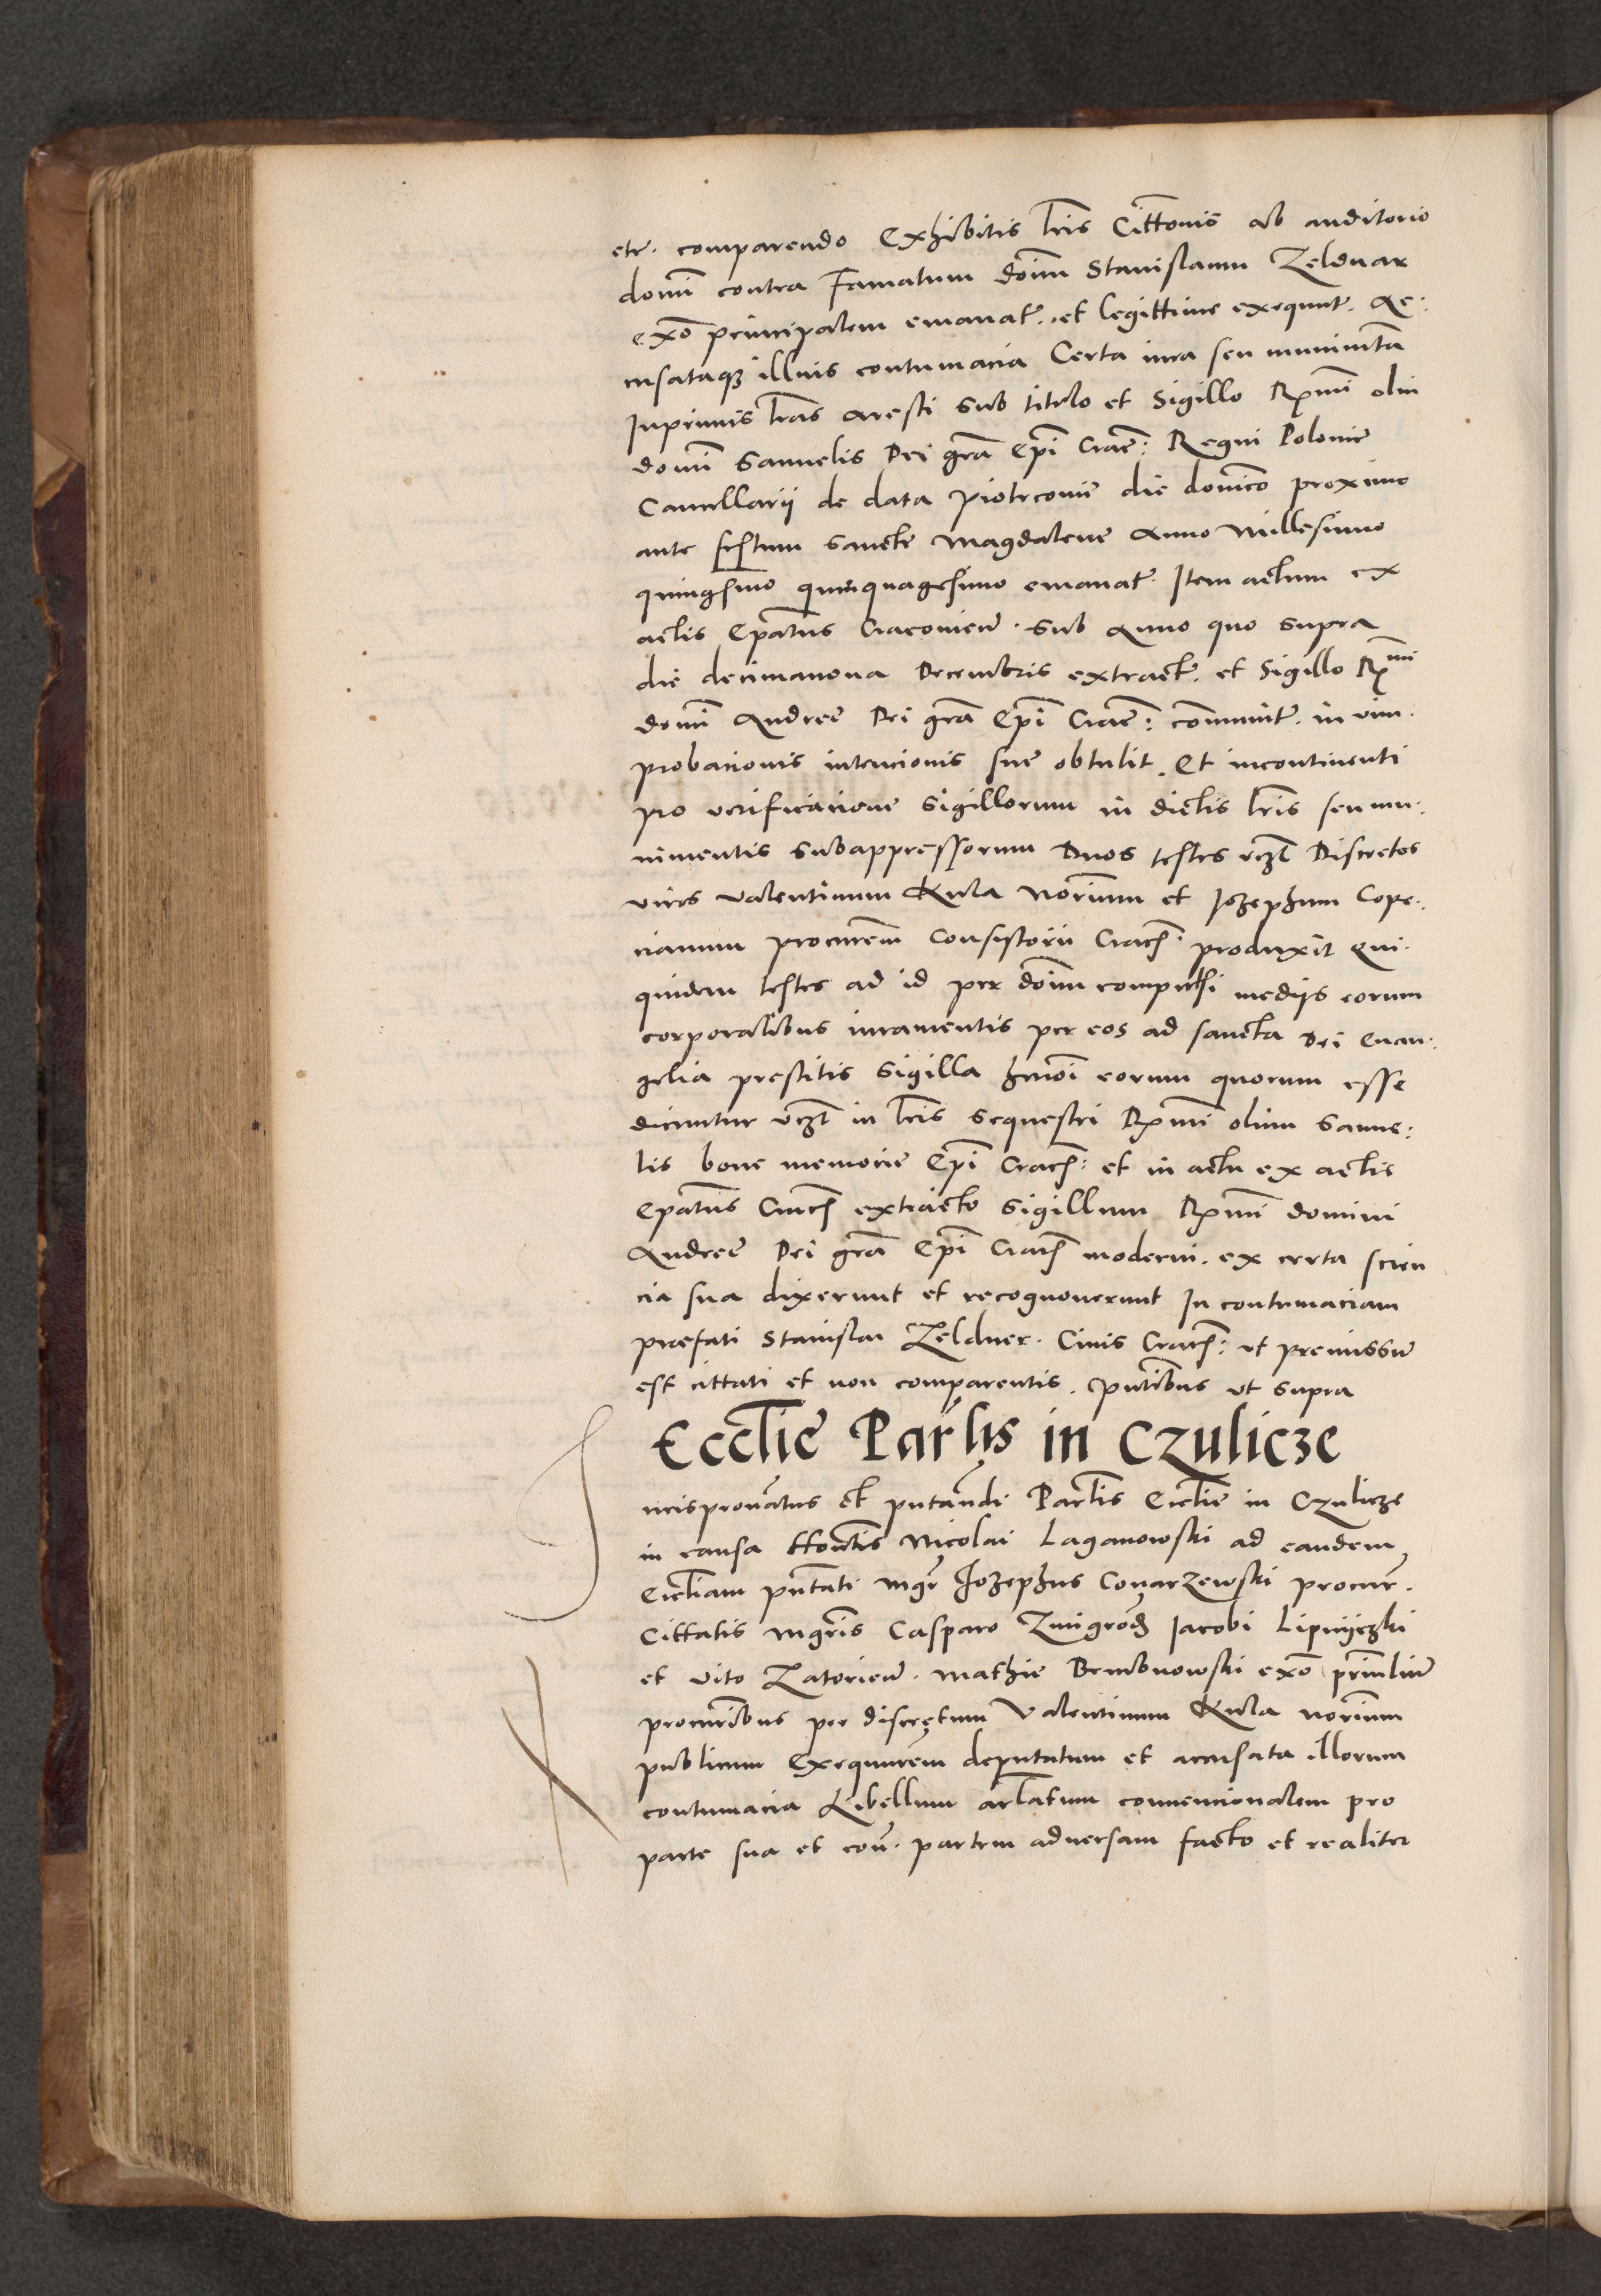 etc. comparendo Exhibitis l̃ris Citt̃onis ab auditorio
domĩ contra Famatum dom̃ Stanislaum Zeldnar
exõ principalem emanat̃. et legittime exequut̃. Ac:
cusataq3 illius contumacia Certa iura seu munim̃ta
Inprimis l̃ras aresti sub titulo et Sigillo R̃mi olim
domĩ Samuelis Dei gr̃a Ep̃i Crac̃: Regni Polonie
Cancellarij de data Piotrcouie die domĩco proximo
ante festum Sancte Magdalene Anno Millesimo
quingẽsimo quinquagesimo emanat̃. Item actum ex
actis Ep̃atus Cracouień. sub Anno quo supra
die decimanona Decembris extract̃. et Sigillo R̃mi
domĩ Andree Dei gr̃a Ep̃i Crac̃: com̃unit̃. in vim.
probacionis intencionis sue obtulit. Et incontinenti
pro verificacione Sigillorum in dictis l̃ris seu mu:
nimentis subappressorum Duos testes vcz̃t Discretos
viros Valentinum Kula Nõrium et Iozephum Cope:
cianum procur̃em Consistorii Crac̃. produxit qui:
quidem testes ad id per dom̃ compulsi medijs eorum
corporalibus iuramentis per eos ad sancta Dei Euan:
gelia prestitis Sigilla hm̃oi eorum quorum esse
dicuntur vcz̃t in l̃ris Sequestri R̃mi olim Samue:
lis bone memorie Ep̃i Crac̃: et in actu ex actis
Ep̃atus Crac̃ extracto Sigillum R̃mi domini
Andree Dei gr̃a Ep̃i Crac̃ moderni. ex certa scien
cia sua dixerunt et recognouerunt In contumaciam
praefati Stanislai Zeldner. Ciuis Crac̃: ut premissũ
est cittati et non comparentis. pñtibus ut supra
Eccl̃ie Par̃lis in Czulicze
in causa Nicolai Laganowski ad eandem
Eccl̃iam pñtati mgr̃ Jozephus Conarzewski procur̃.
Cittatis mgr̃is Casparo Zmigrod̃ Jacobi Lipnyczki
et Vito Zatorień. Mathie Bembnowski exõ prin̄lium
procur̃ibus per discretum Valentinum Kula nõrium
publicum Exequur̃em deputatum et accusata illorum
contumacia Libellum art̃latum conuencionalem pro
parte sua et coñ. partem aduersam facto et realiter